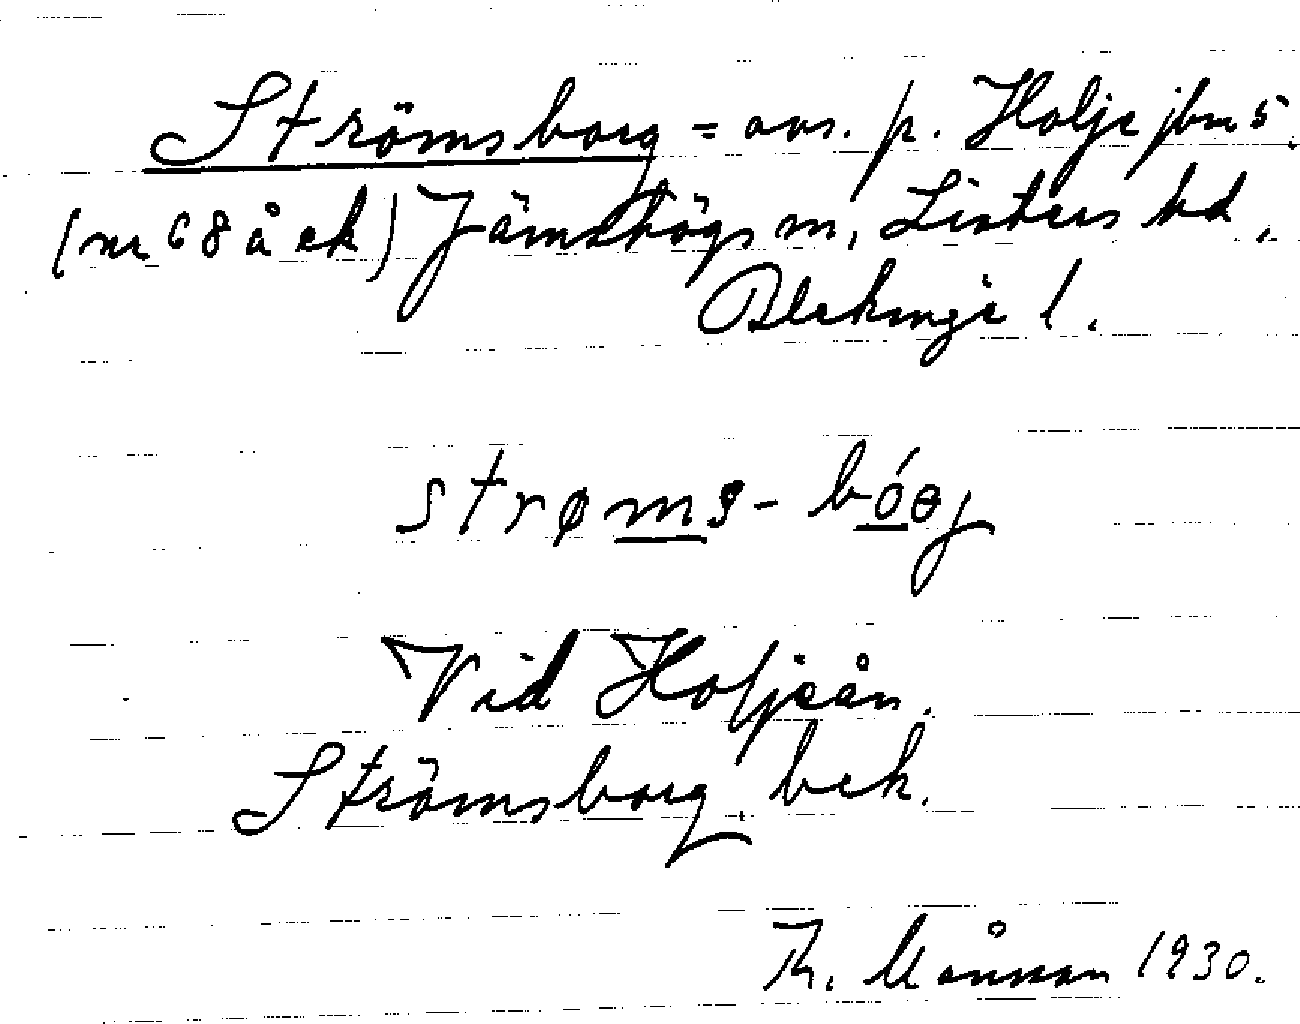 Strömsborg = avs. p. Holje jbn 5.
(nr 68 å ek) Jämshögs sn, Listers hd,
Blekinge l.
strøms-bóɵj
Vid Holjeån.
Strömsborg bek.
Månsson 1930.